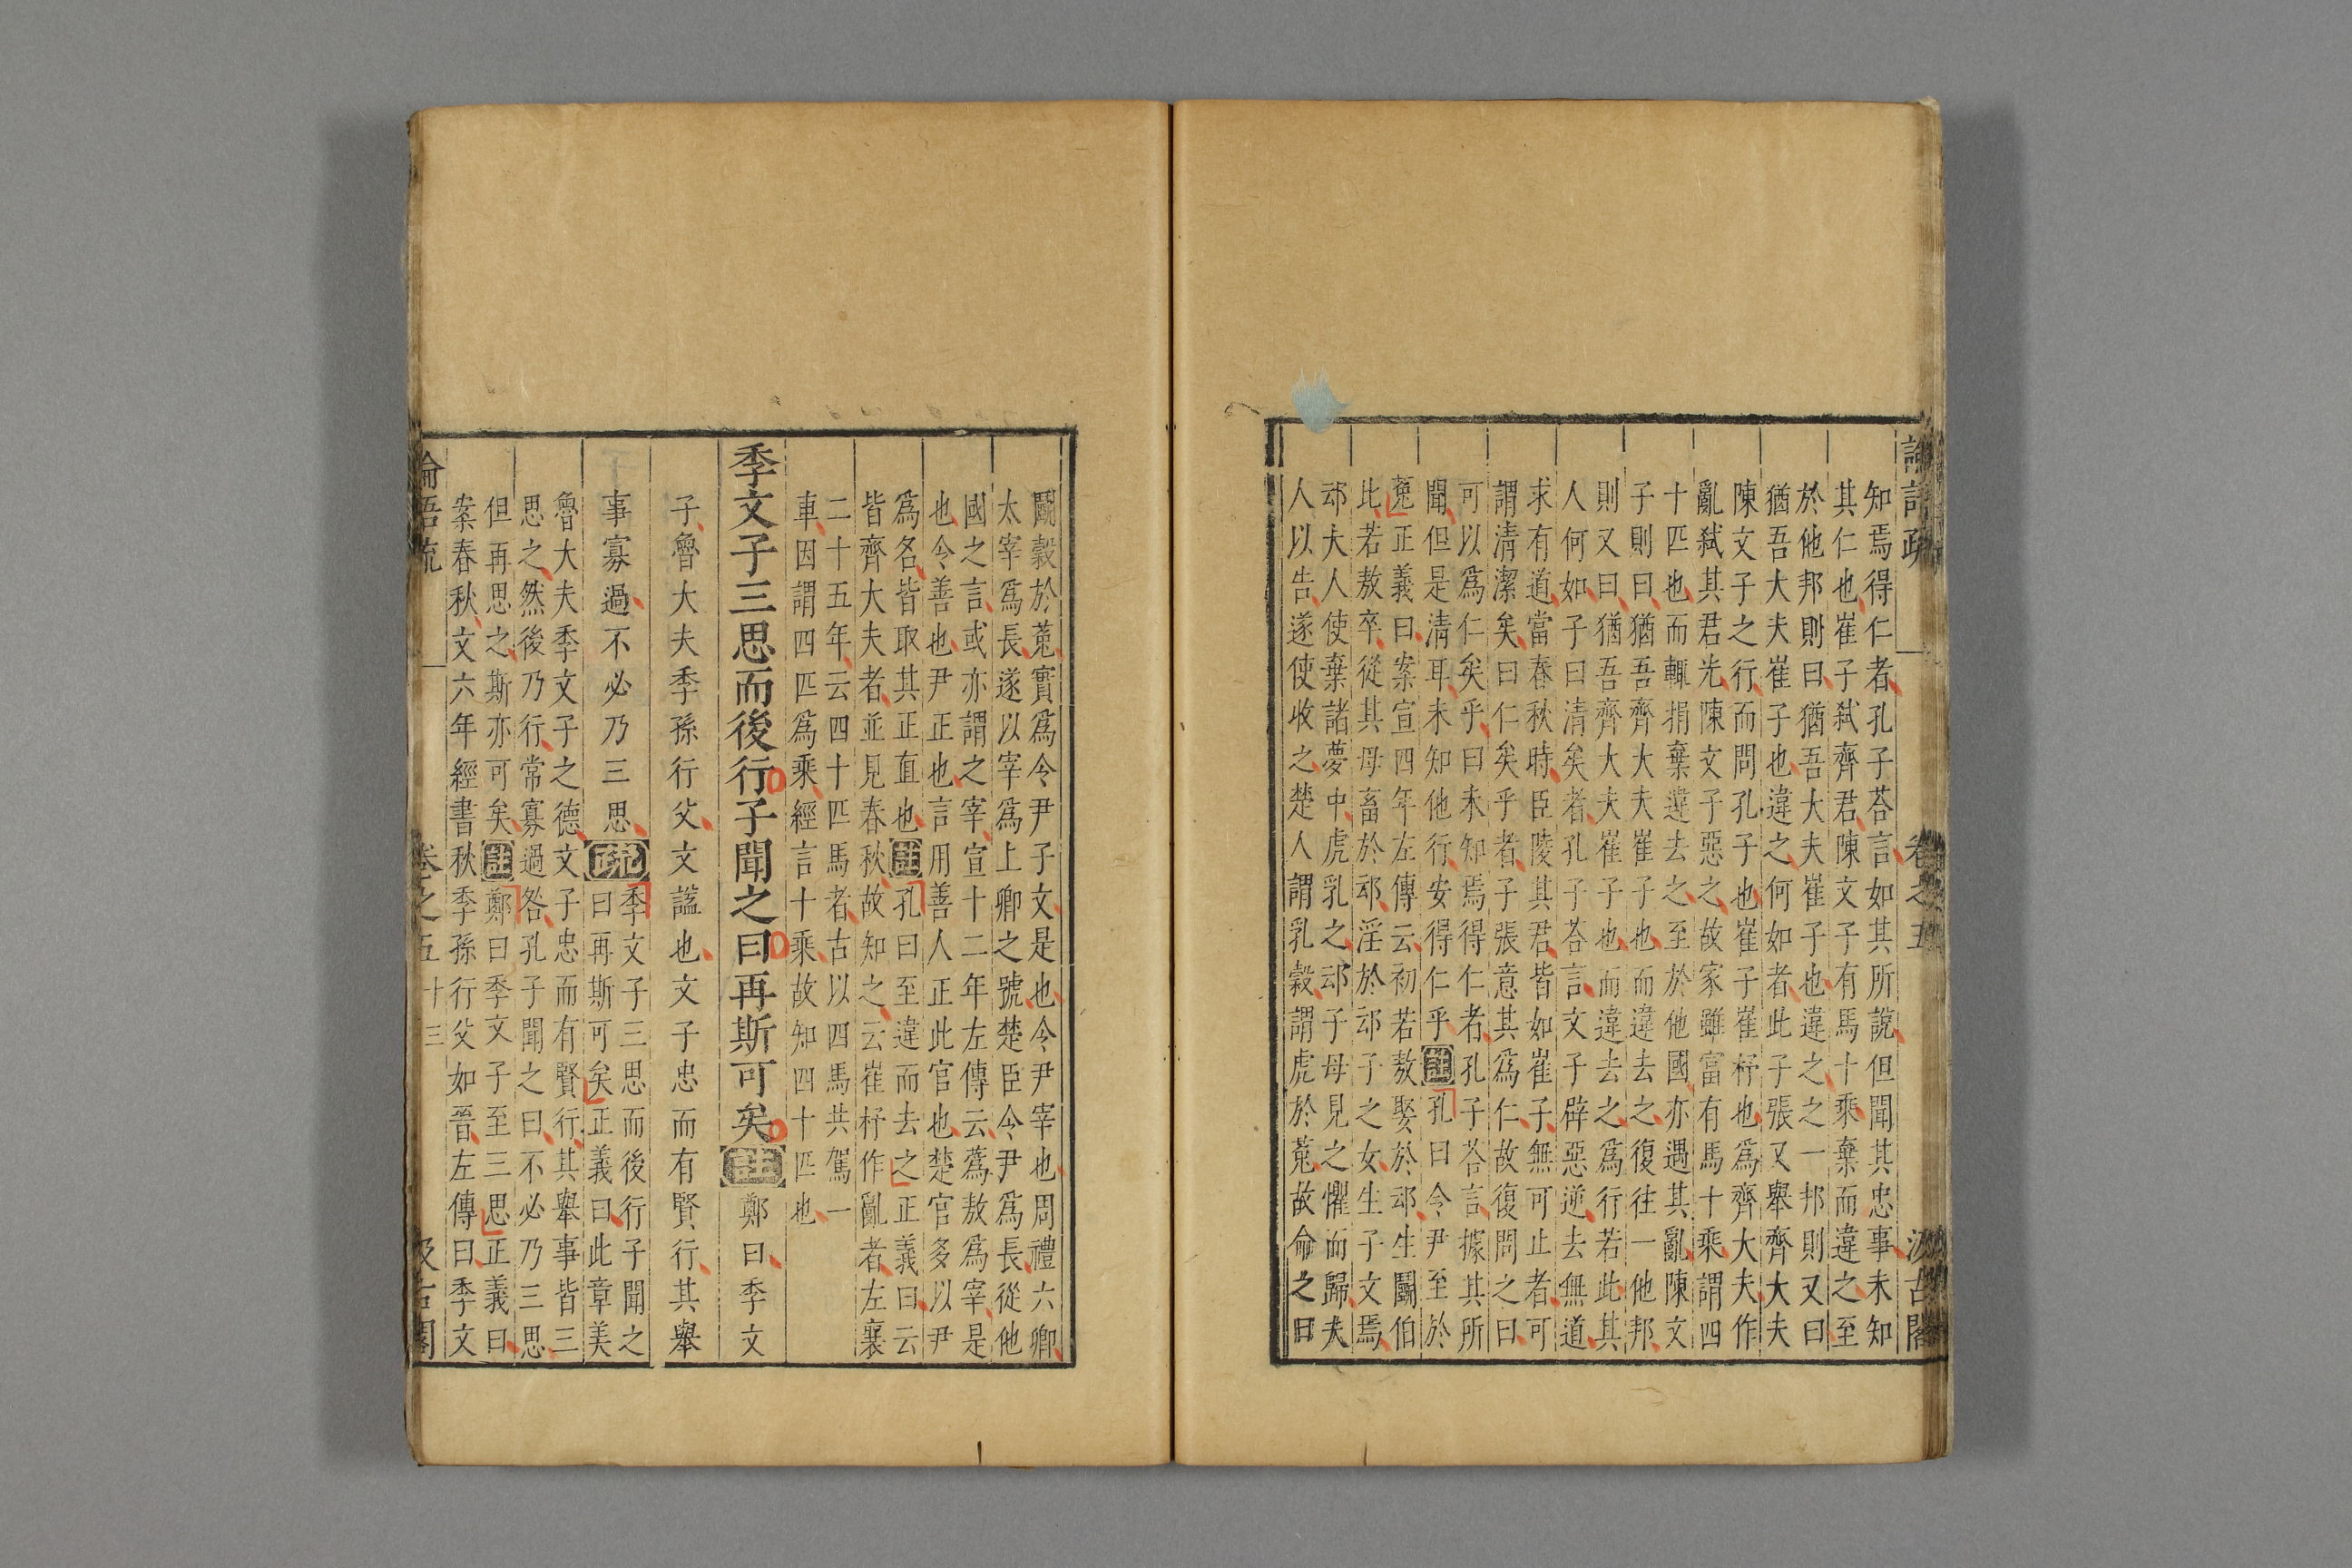 論語疏
卷之五
汲古閣
知焉得仁者孔子荅言如其所說但聞其忠事未知
其仁也崔子弑齊君陳文子有馬十乘棄而違之至
於他邦則曰猶吾大夫崔子也違之之一邦則又曰
猶吾大夫崔子也違之何如者此子張又舉齊大夫
陳文子之行而問孔子也崔子崔杼也爲齊大夫作
亂弑其君光陳文子惡之故家雖富有馬十乘謂四
十匹也而輒捐棄違去之至於他國亦遇其亂陳文
子則曰猶吾齊大夫崔子也而違去之復往一他邦
則又曰猶吾齊大夫崔子也而違去之爲行若此其
人何如子曰清矣者孔子荅言文子辟惡逆去無道
求有道當春秋時臣陵其君皆如崔子無可止者可
謂清潔矣曰仁矣乎者子張意其爲仁故復問之曰
可以爲仁矣乎曰未知焉得仁者孔子荅言據其所
聞但是清耳未知他行安得仁乎註孔曰令尹至於
菟正義曰案宣四年左傳云初若敖娶於䢵生鬭伯
比若敖卒從其母畜於䢵淫於䢵子之女生子文焉
䢵夫人使棄諸夢中虎乳之䢵子母見之懼而歸夫
人以告遂使收之楚人謂乳穀謂虎於菟故命之曰
鬭穀於菟實爲令尹子文是也令尹宰也周禮六卿
太宰爲長遂以宰爲上卿之號楚臣令尹爲長從他
國之言或亦謂之宰宣十二年左傳云蒍敖爲宰是
也令善也尹正也言用善人正此官也楚官多以尹
爲名皆取其正直也註孔曰至違而去之正義曰云
皆齊大夫者並見春秋故知之云崔杼作亂者左襄
二十五年云四十匹馬者古以四馬共駕一
車因謂四匹爲乘經言十乘故知四十匹也
季文子三思而後行子聞之曰再斯可矣註鄭曰季文
子魯大夫季孫行父文謚也文子忠而有賢行其舉
事寡過不必乃三思疏季文子三思而後行子聞之
曰再斯可矣正義曰此章美
魯大夫季文子之德文子忠而有賢行其舉事皆三
思之然後乃行常寡過咎孔子聞之曰不必乃三思
但再思之斯亦可矣註鄭曰季文子至三思正義曰
案春秋文六年經書秋季孫行父如晉左傳曰季文
論語疏
卷之五
十三
汲古閣